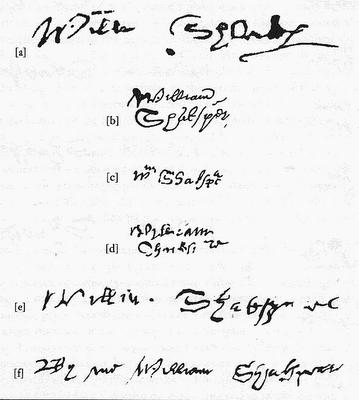 [a] Willm Shakp
[b] William
Shaksper
[c] Wm Shakspe
[d] William
Shakspere
[e] Willm Shakspere
[f] By me William Shakspeare